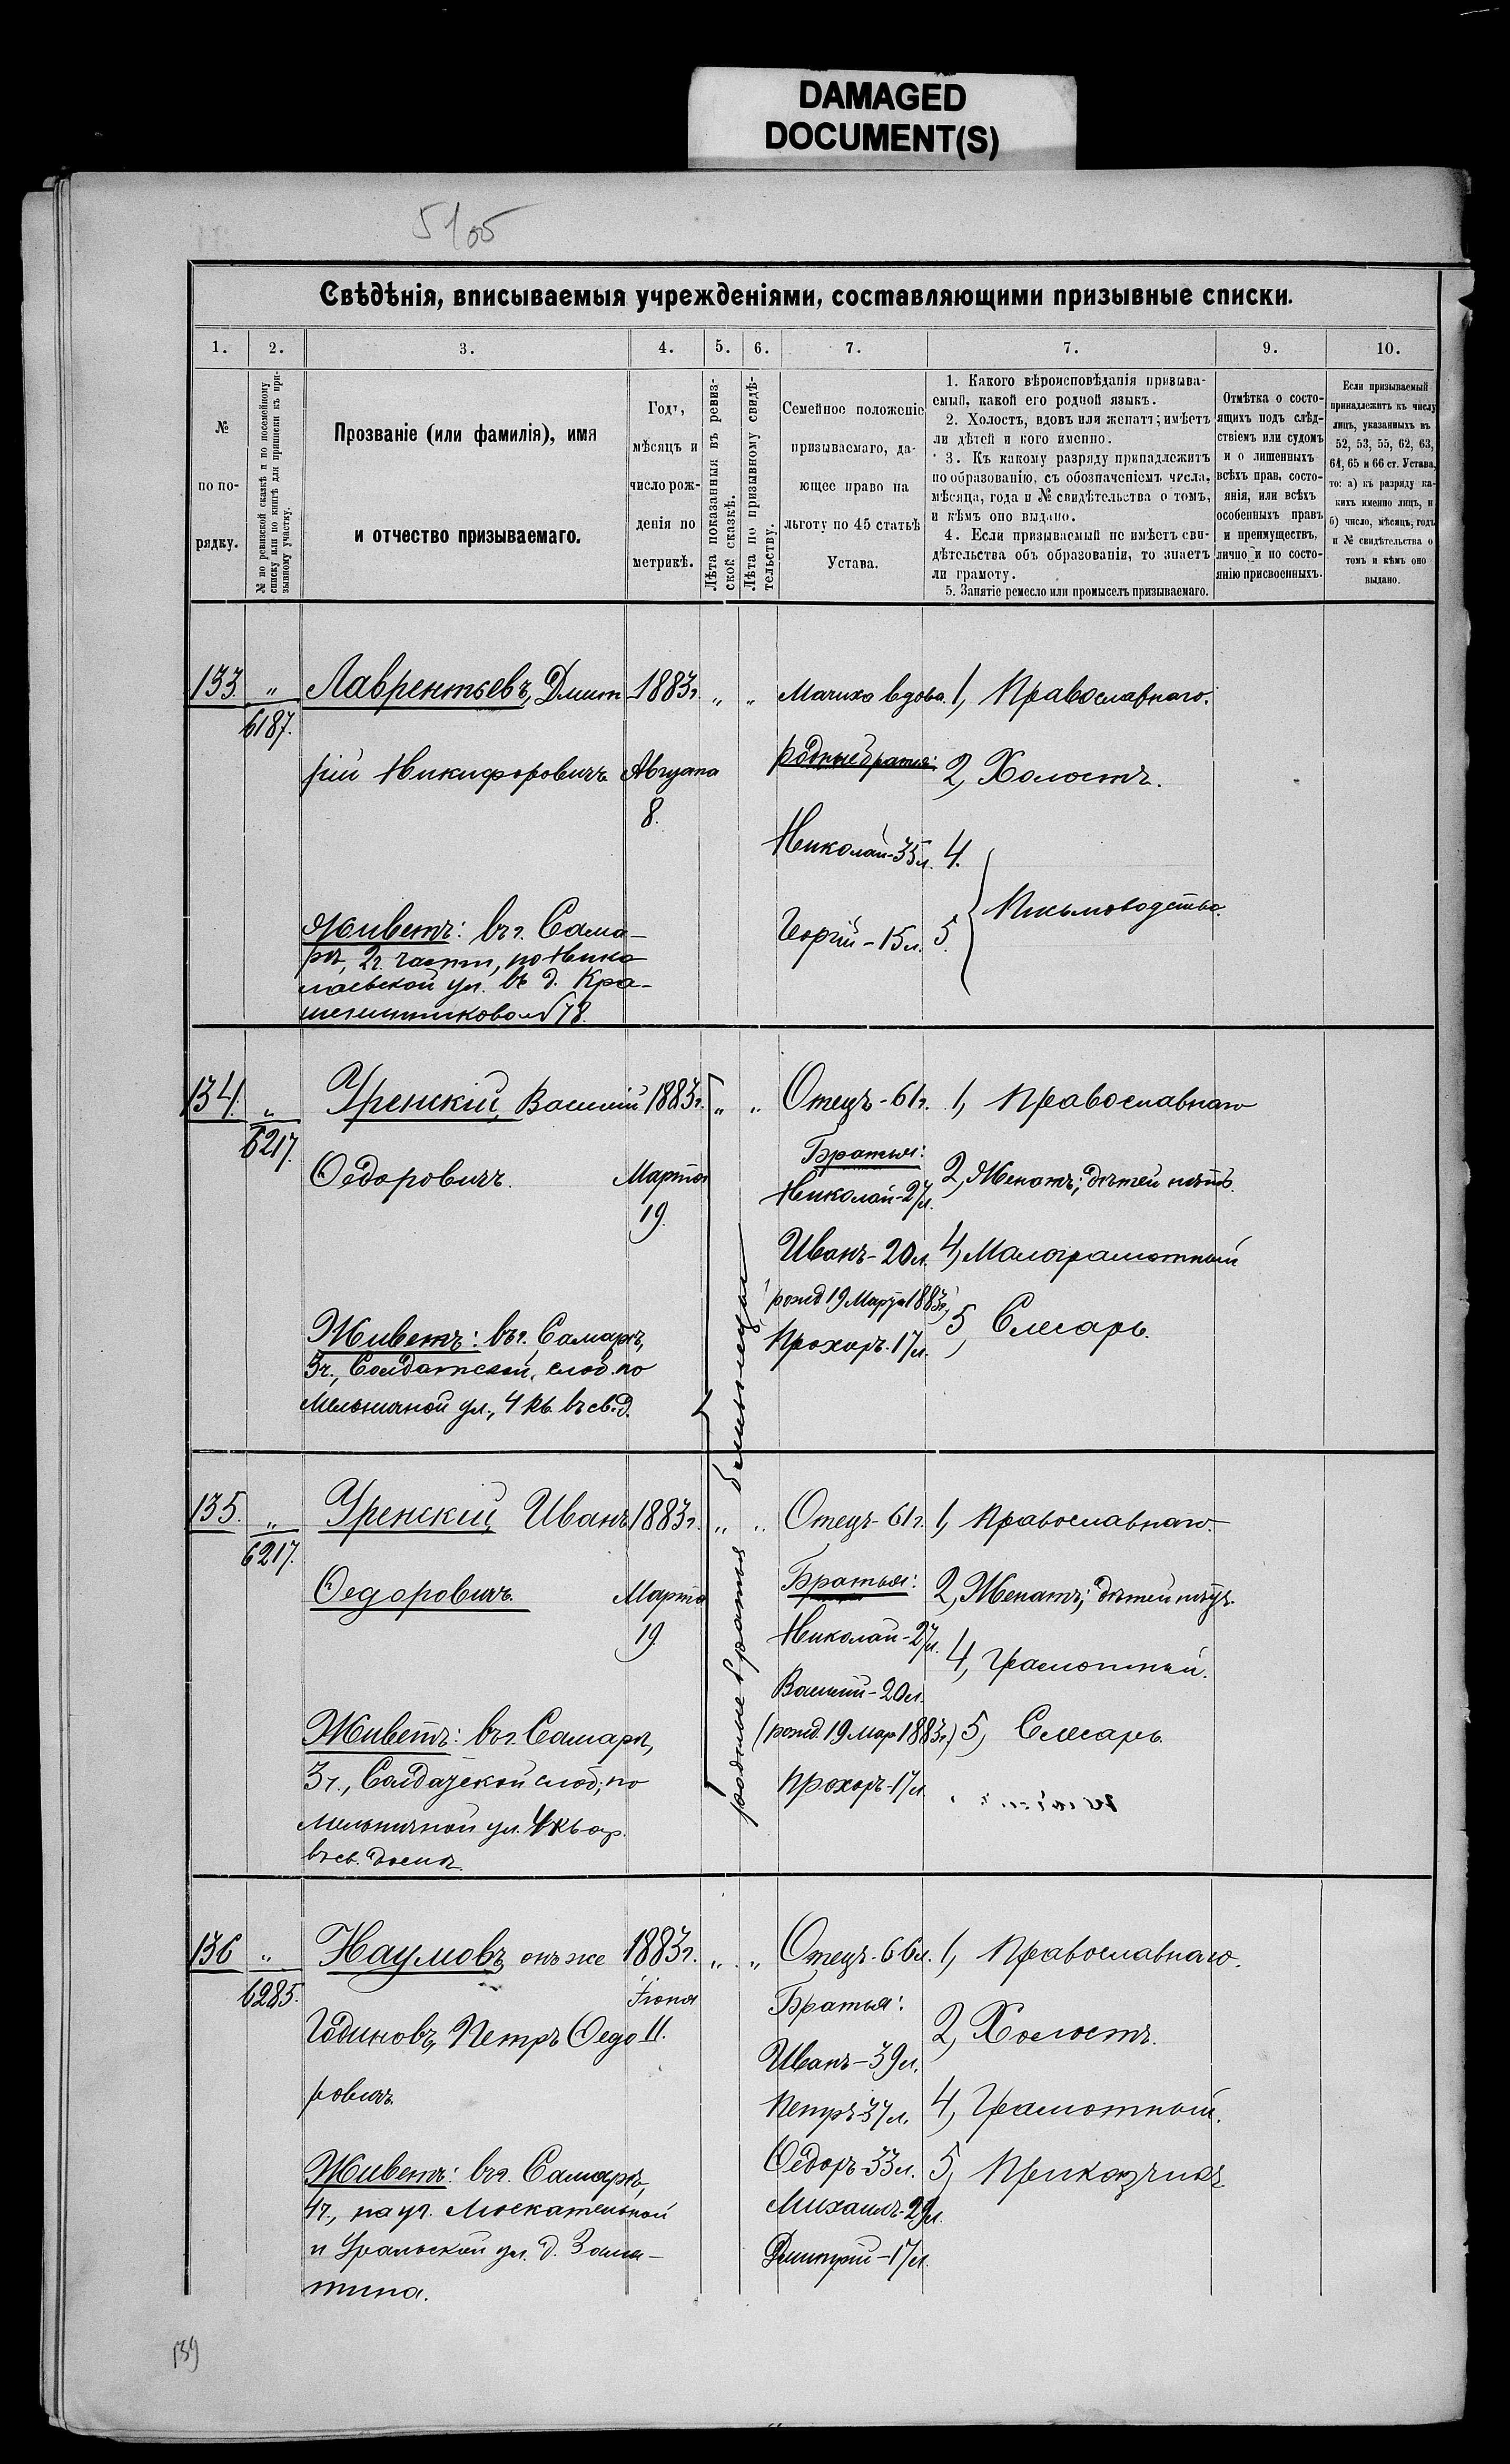 DAMAGED
DOCUMENT(S)
5105
Свѣдѣнія, вписываемыя учрежденіями, составляющими призывные списки.
1. 2. 3. 4. 5. 6. 7. 7. 9. 10.
№
по по-
рядку.
№ по ревизской сказкѣ и по посемейному
списку или по книгѣ для приписки къ при-
зывному участку.
Прозваніе (или фамилія), имя
и отчество призываемаго.
Годъ,
мѣсяцъ и
число рож-
денія по
метрикѣ.
Лѣта показанныя въ ревиз-
ской сказкѣ.
Лѣта по призывному свидѣ-
тельству.
Семейное положеніе
призываемаго, да-
ющее право на
льготу по 45 статьѣ
Устава.
1. Какого вѣроисповѣданія призыва-
емый, какой его родной языкъ.
2. Холостъ, вдовъ или женатъ; имѣетъ
ли дѣтей и кого именно.
3. Къ какому разряду принадлежитъ
по образованію, съ обозначеніемъ числа,
мѣсяца, года и № свидѣтельства о томъ,
и кѣмъ оно выдано.
4. Если призываемый не имѣетъ сви-
дѣтельства объ образованіи, то знаетъ
ли грамоту.
5. Занятіе ремесло или промыселъ призываемаго.
Отмѣтка о состо-
ящихъ подъ слѣд-
ствіемъ или судомъ
и о лишенныхъ
всѣхъ прав, состо-
янія, или всѣхъ
особенныхъ правъ
и преимуществъ,
лично и по состо-
янію присвоенныхъ.
Если призываемый
принадлежитъ къ числу
лицъ, указанныхъ въ
52, 53, 55, 62, 63,
64, 65 и 66 ст. Устава,
то: а) къ разряду ка-
кихъ именно лицъ, и
б) число, мѣсяцъ, годъ
и № свидѣтельства о
томъ и кѣмъ оно
выдано.
133. " Лаврентьевъ, Дмит 1883г. " " Мачиха вдова. 1, Православнаго.
6187.
рій Никифоровичъ Августа родные братья: 2, Холостъ.
8.
Николай-35л. 4.
Георгій-15л. 5. Письмоводство.
Живетъ: въ г. Сама-
рѣ, 2ч. части, по Нико
лаевской ул. въ д. Кра-
шенинникова №78.
134. " Уренскій, Василій 1883г. " " Отецъ-61г. 1, Православнаго
6217.
Ѳедоровичъ. Марта Братья: 2, Женатъ; дѣтей нѣтъ.
19. Николай-27л.
Иванъ-20л. 4, Малограмотный
(рожд 19 Марта 1883г)
Прохоръ-17л. 5, Слесарь.
Живетъ: въ г. Самарѣ,
3ч., Солдатской, слоб. по
Мельничной ул., 4 кв. въ св. д.
родные братья близнецы
135. " Уренскій, Иванъ 1883г. " " Отецъ-61г. 1, Православнаго.
6217.
Ѳедоровичъ. Марта Братья: 2, Женатъ; дѣтей нѣтъ.
19. Николай-27л. 4, Грамотный.
Василій-20л.
(рожд. 19 Мар 1883г.) 5, Слесарь.
Прохоръ-17л.
Живетъ: въ г. Самарѣ,
3ч., Солдатской слоб; по
Мельничной ул. 4 квар.
въ св. домѣ.
136 " Наумовъ, онъ же 1883г. " " Отецъ-66л. 1, Православнаго.
6285. Іюня
Годиновъ, Петръ Ѳедо 11. Братья: 2, Холостъ.
ровичъ. Иванъ-39л.
Петръ-37л. 4, Грамотный.
Ѳедоръ-33л. 5, Приказчикъ
Михаилъ-29л.
Дмитрій-17л.
Живетъ: въ г. Самарѣ,
4ч., на уг. Москательной
и Уральской ул. д. Замя-
тина.
139